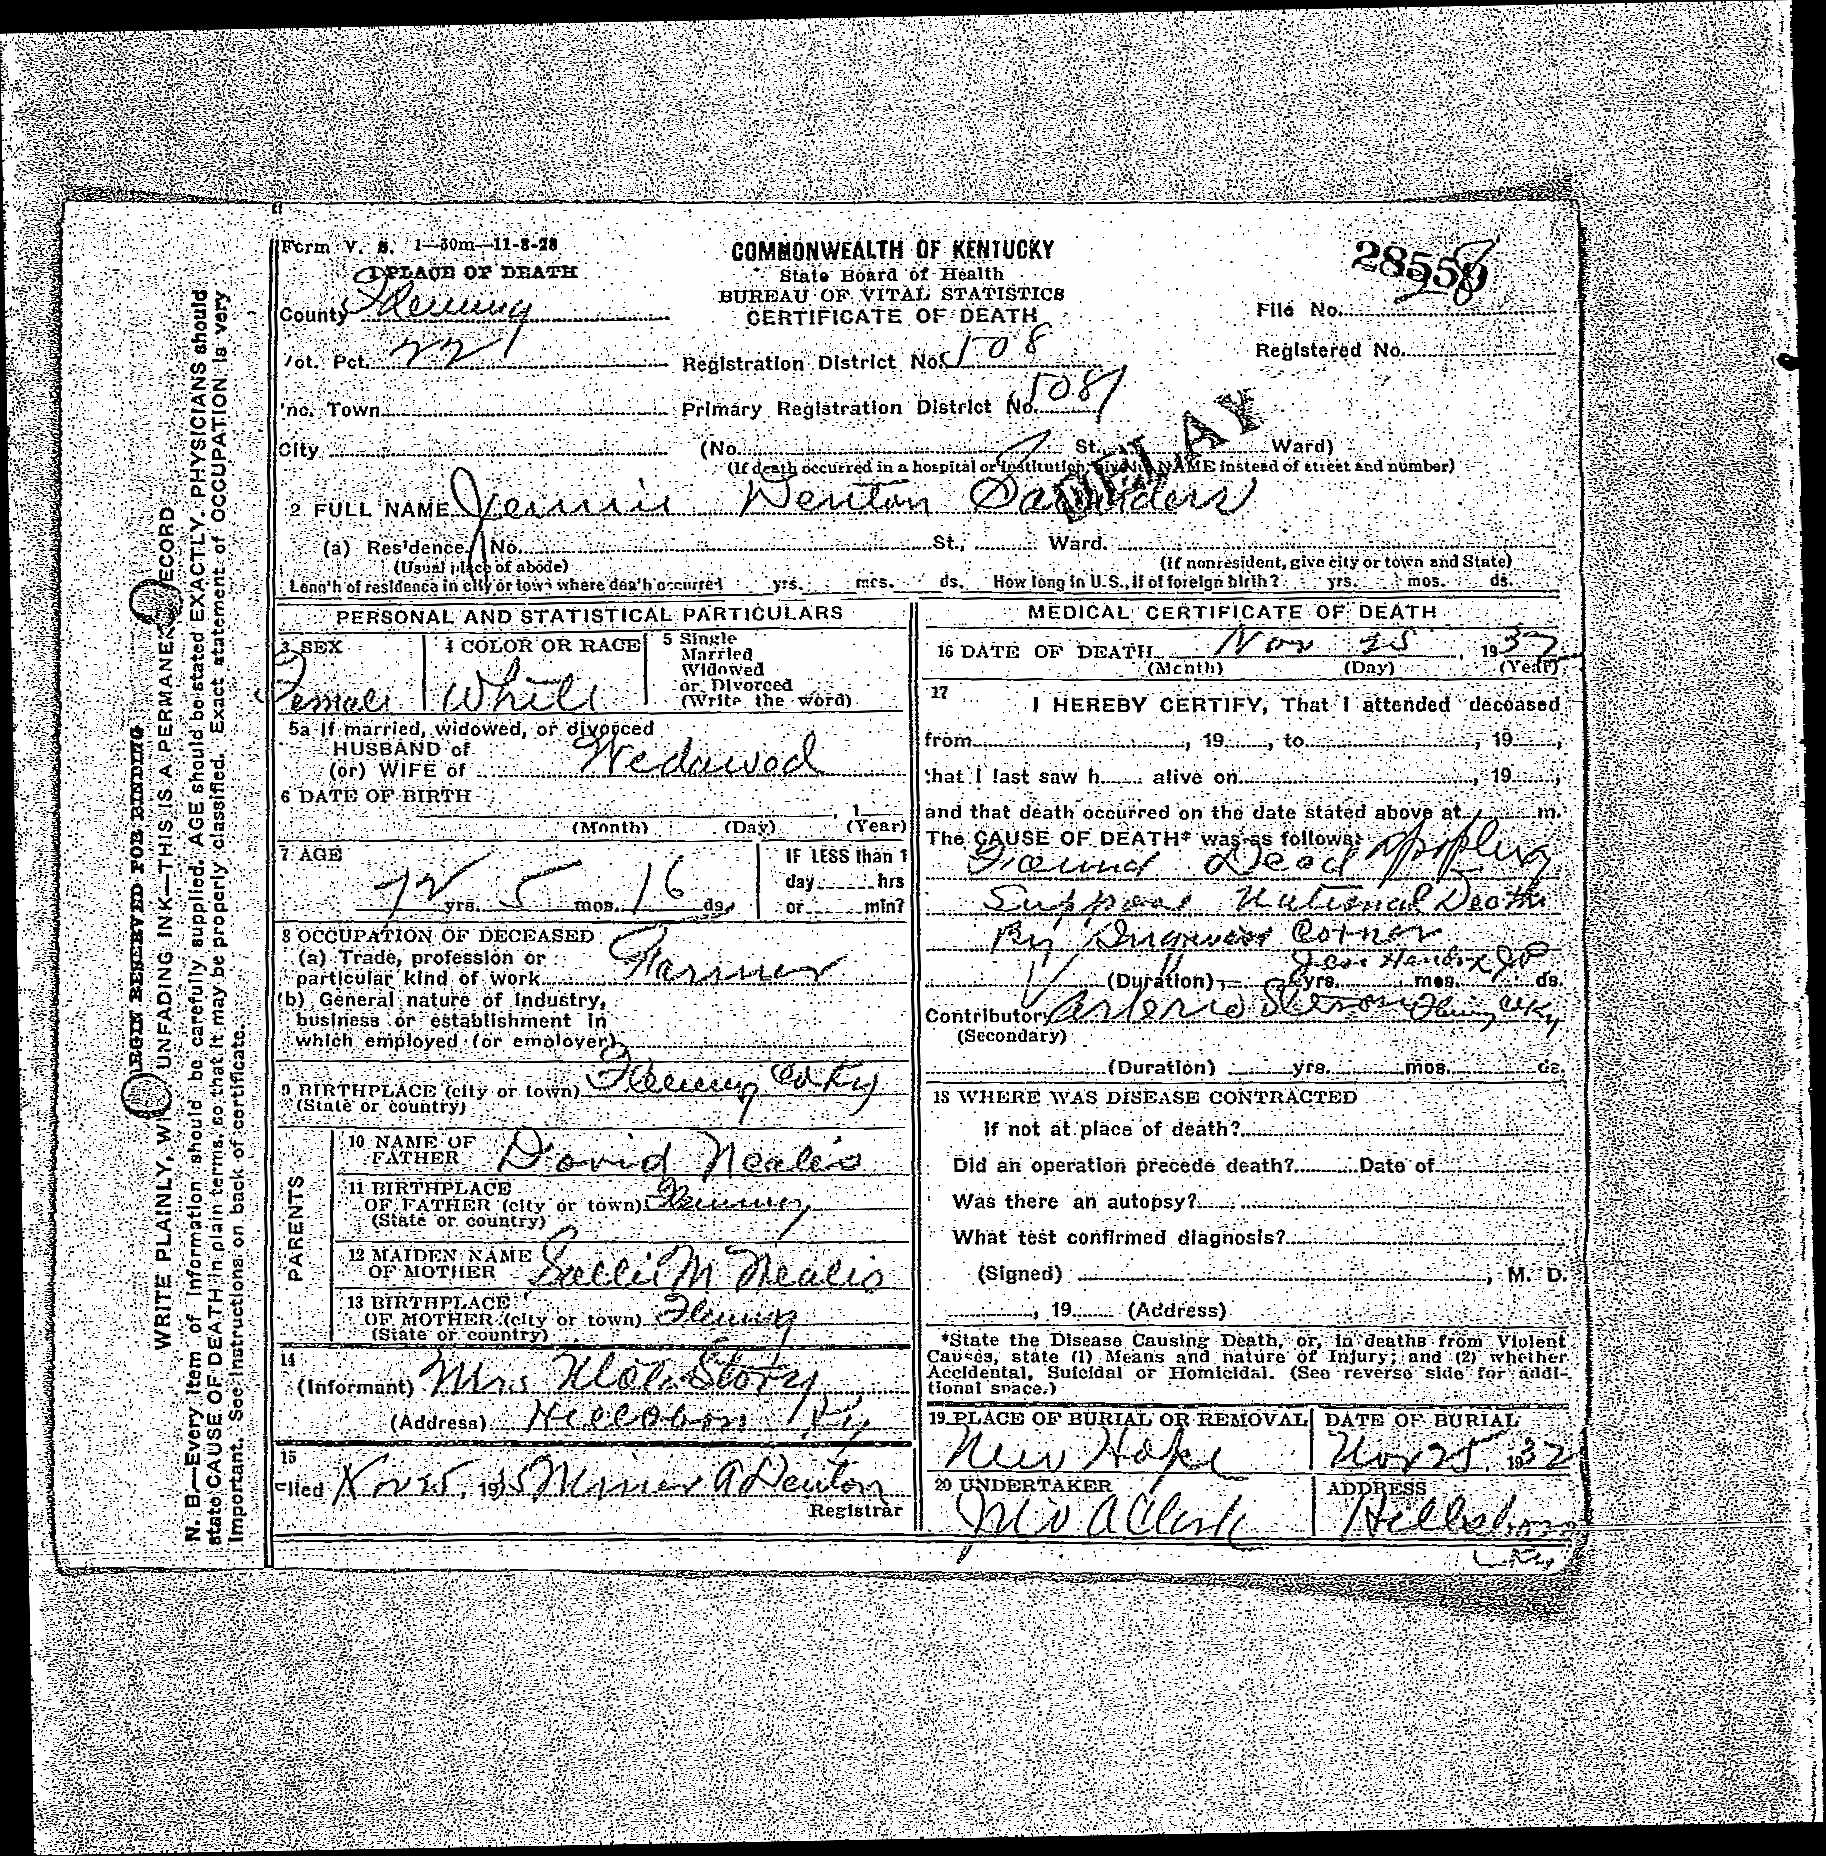 Form V. S. 1—50m—11-8-28
COMMONWEALTH OF KENTUCKY
State Board of Health
BUREAU OF VITAL STATISTICS
CERTIFICATE OF DEATH
1 PLACE OF DEATH
County Fleming
File No.
Vot. Pct. 221
Registration District No. 108
Registered No.
Inc. Town
Primary Registration District No. 1081
City (No. St., Ward)
DELAY
(If death occurred in a hospital or institution, give its NAME instead of street and number)
2 FULL NAME Jennie Denton Saunders
(a) Residence. No. St., Ward.
(Usual place of abode) (If nonresident, give city or town and State)
Length of residence in city or town where death occurred yrs. mos. ds. How long in U.S., if of foreign birth? yrs. mos. ds.
PERSONAL AND STATISTICAL PARTICULARS
3 SEX
Female
4 COLOR OR RACE
White
5 Single
Married
Widowed
or Divorced
(Write the word)
5a If married, widowed, or divorced
HUSBAND of
(or) WIFE of Wedowod
6 DATE OF BIRTH
, 1
(Month) (Day) (Year)
7 AGE
72 yrs. 5 mos. 16 ds.
IF LESS than 1
day hrs
or min?
8 OCCUPATION OF DECEASED
(a) Trade, profession or
particular kind of work Farmer
(b) General nature of Industry,
business or establishment in
which employed (or employer)
9 BIRTHPLACE (city or town) Fleming Co Ky
(State or country)
PARENTS
10 NAME OF
FATHER David Nealis
11 BIRTHPLACE
OF FATHER (city or town) Fleming
(State or country)
12 MAIDEN NAME
OF MOTHER Sallie M Nealis
13 BIRTHPLACE
OF MOTHER (city or town) Fleming
(State or country)
14
(Informant) Mrs Story
(Address) Hillsboro Ky
15
Filed Nov 25, 19 Denton
Registrar
MEDICAL CERTIFICATE OF DEATH
16 DATE OF DEATH Nov 25, 1932
(Month) (Day) (Year)
17
I HEREBY CERTIFY, That I attended deceased
from , 19 , to , 19 ,
that I last saw h alive on , 19 ,
and that death occurred on the date stated above at m.
The CAUSE OF DEATH* was as follows:
Found Dead
Death
By
(Duration) yrs. mos. ds.
Contributory
(Secondary)
(Duration) yrs. mos. ds.
18 WHERE WAS DISEASE CONTRACTED
If not at place of death?
Did an operation precede death? Date of
Was there an autopsy?
What test confirmed diagnosis?
(Signed) , M. D.
, 19 (Address)
*State the Disease Causing Death, or, in deaths from Violent
Causes, state (1) Means and nature of Injury; and (2) whether
Accidental, Suicidal or Homicidal. (See reverse side for addi-
tional space.)
19 PLACE OF BURIAL OR REMOVAL
New Hope
DATE OF BURIAL
Nov 25, 1932
20 UNDERTAKER
A Clark
ADDRESS
Hillsboro
Ky
MARGIN RESERVED FOR BINDING
WRITE PLAINLY, WITH UNFADING INK—THIS IS A PERMANENT RECORD
N. B.—Every item of information should be carefully supplied. AGE should be stated EXACTLY. PHYSICIANS should
state CAUSE OF DEATH in plain terms, so that it may be properly classified. Exact statement of OCCUPATION is very
Important. See Instructions on back of certificate.